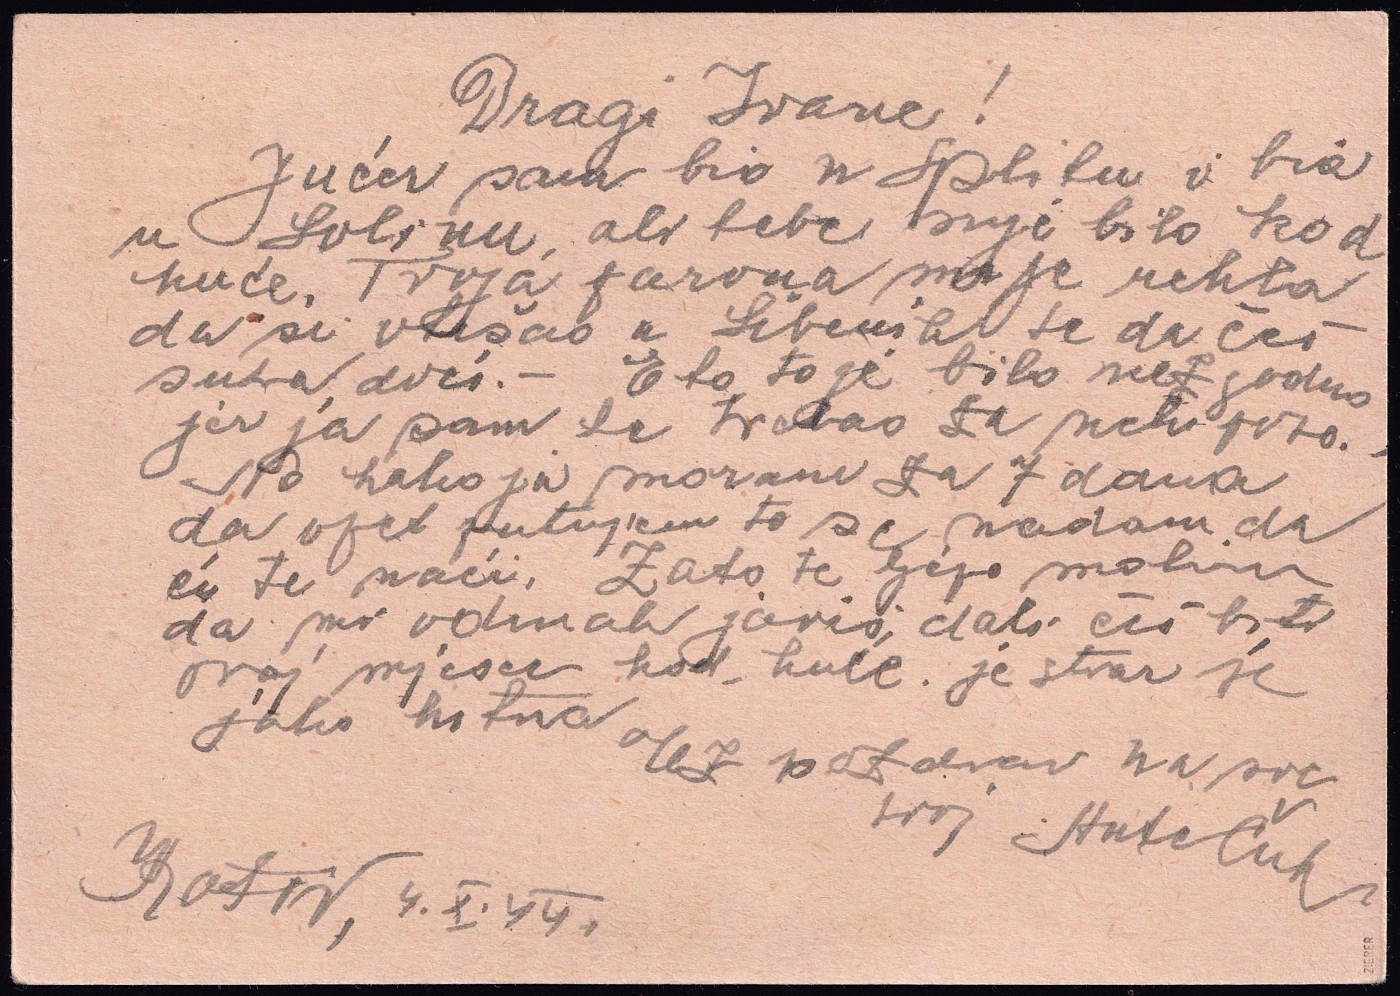 Dragi Ivane!
Jučer sam bio u Splitu i bia
u Solinu, ali tebe nije bilo kod
kuće. Tvoja mi je rekla
da si otišao u Šibenik te da ćeš
sutra doći. — Eto to je bilo nezgodno
jer ja sam te trebao za neki
No kako ja moram za 7 dana
da opet putujem to se nadam da
ću te naći. Zato te lijepo molim
da mi odmah javiš, dali ćeš biti
ovaj mjesec kod kuće. je stvar je
jako hitna
Uz pozdrav na sve
tvoj Ante Čuk
4.X.44.
ZIEPER